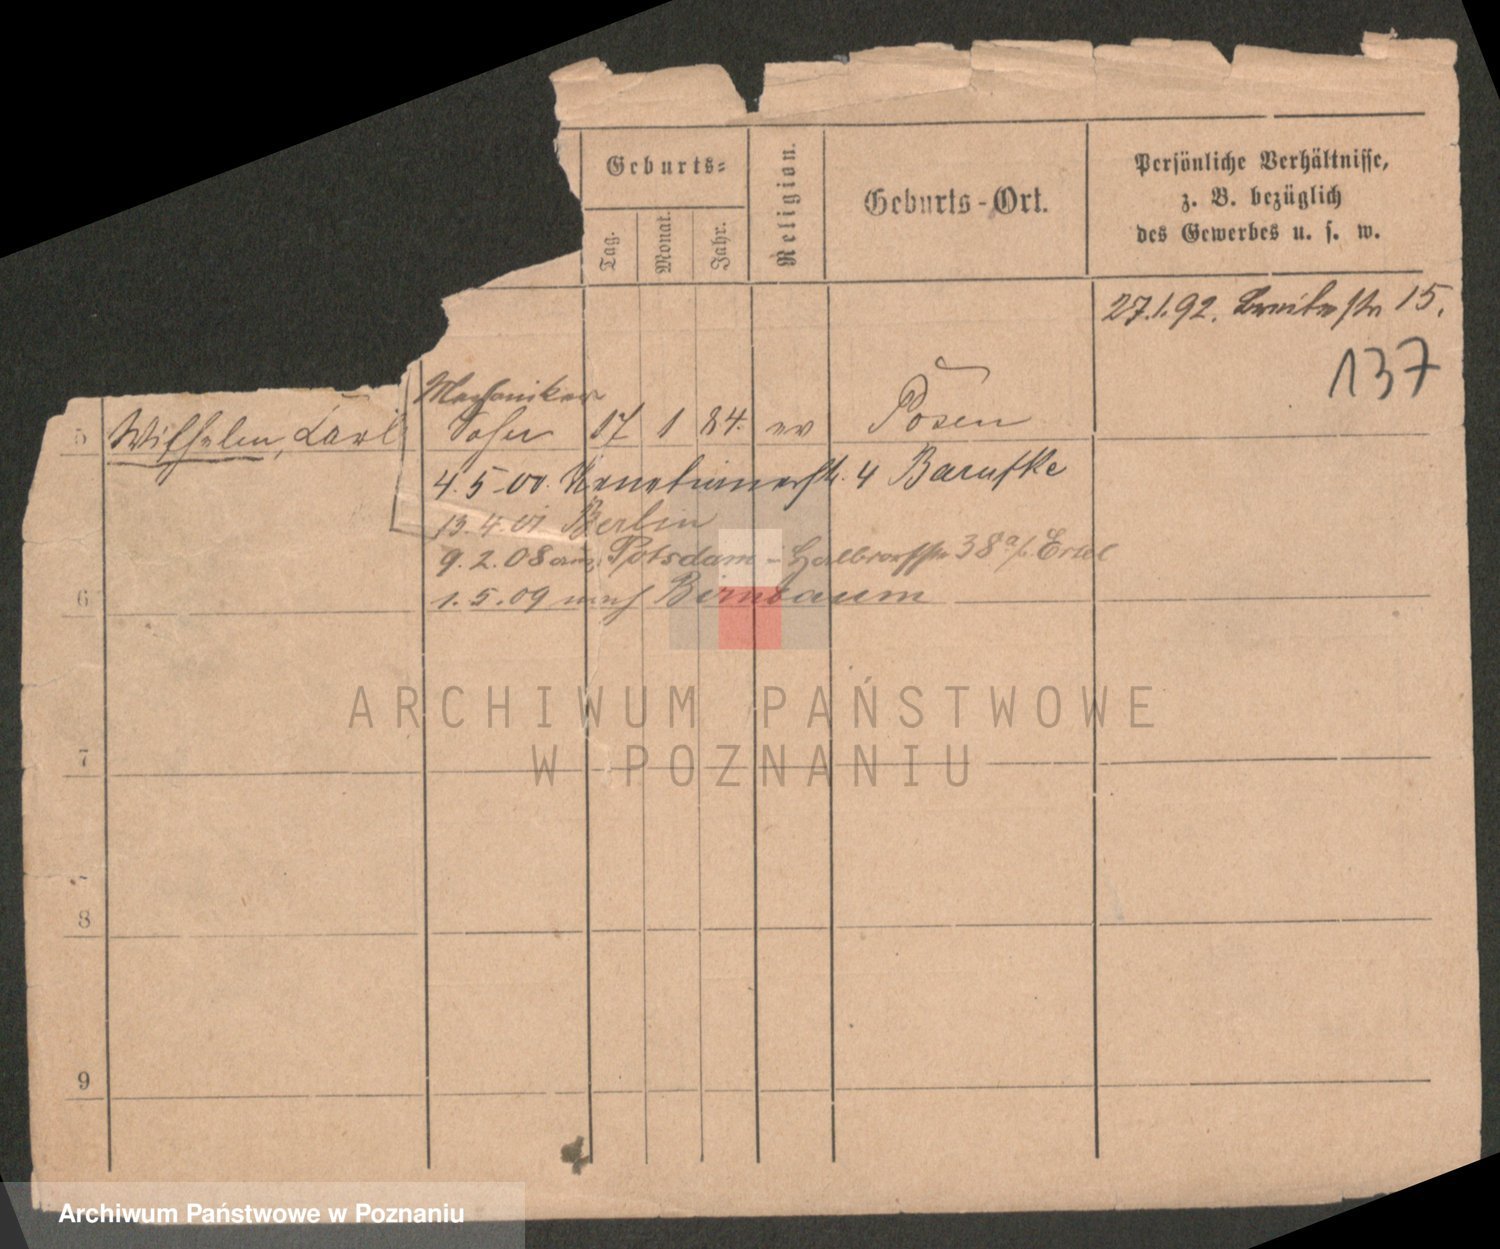 Geburts=
Tag.
Monat.
Jahr.
Religion.
Geburts-Ort.
Persönliche Verhältnisse,
z. B. bezüglich
des Gewerbes u. s. w.
27.1.92. Breitestr 15.
137
Mechaniker
5 Wilhelm, Carl Sohn 17 1 84. ev Posen
4.5.00. Venetianerstr. 4 Barufke
13.4.01 Berlin
9.2.08 aus Potsdam - 38a
6 1.5.09 nach Birnbaum
7
8
9
ARCHIWUM PAŃSTWOWE
W POZNANIU
Archiwum Państwowe w Poznaniu